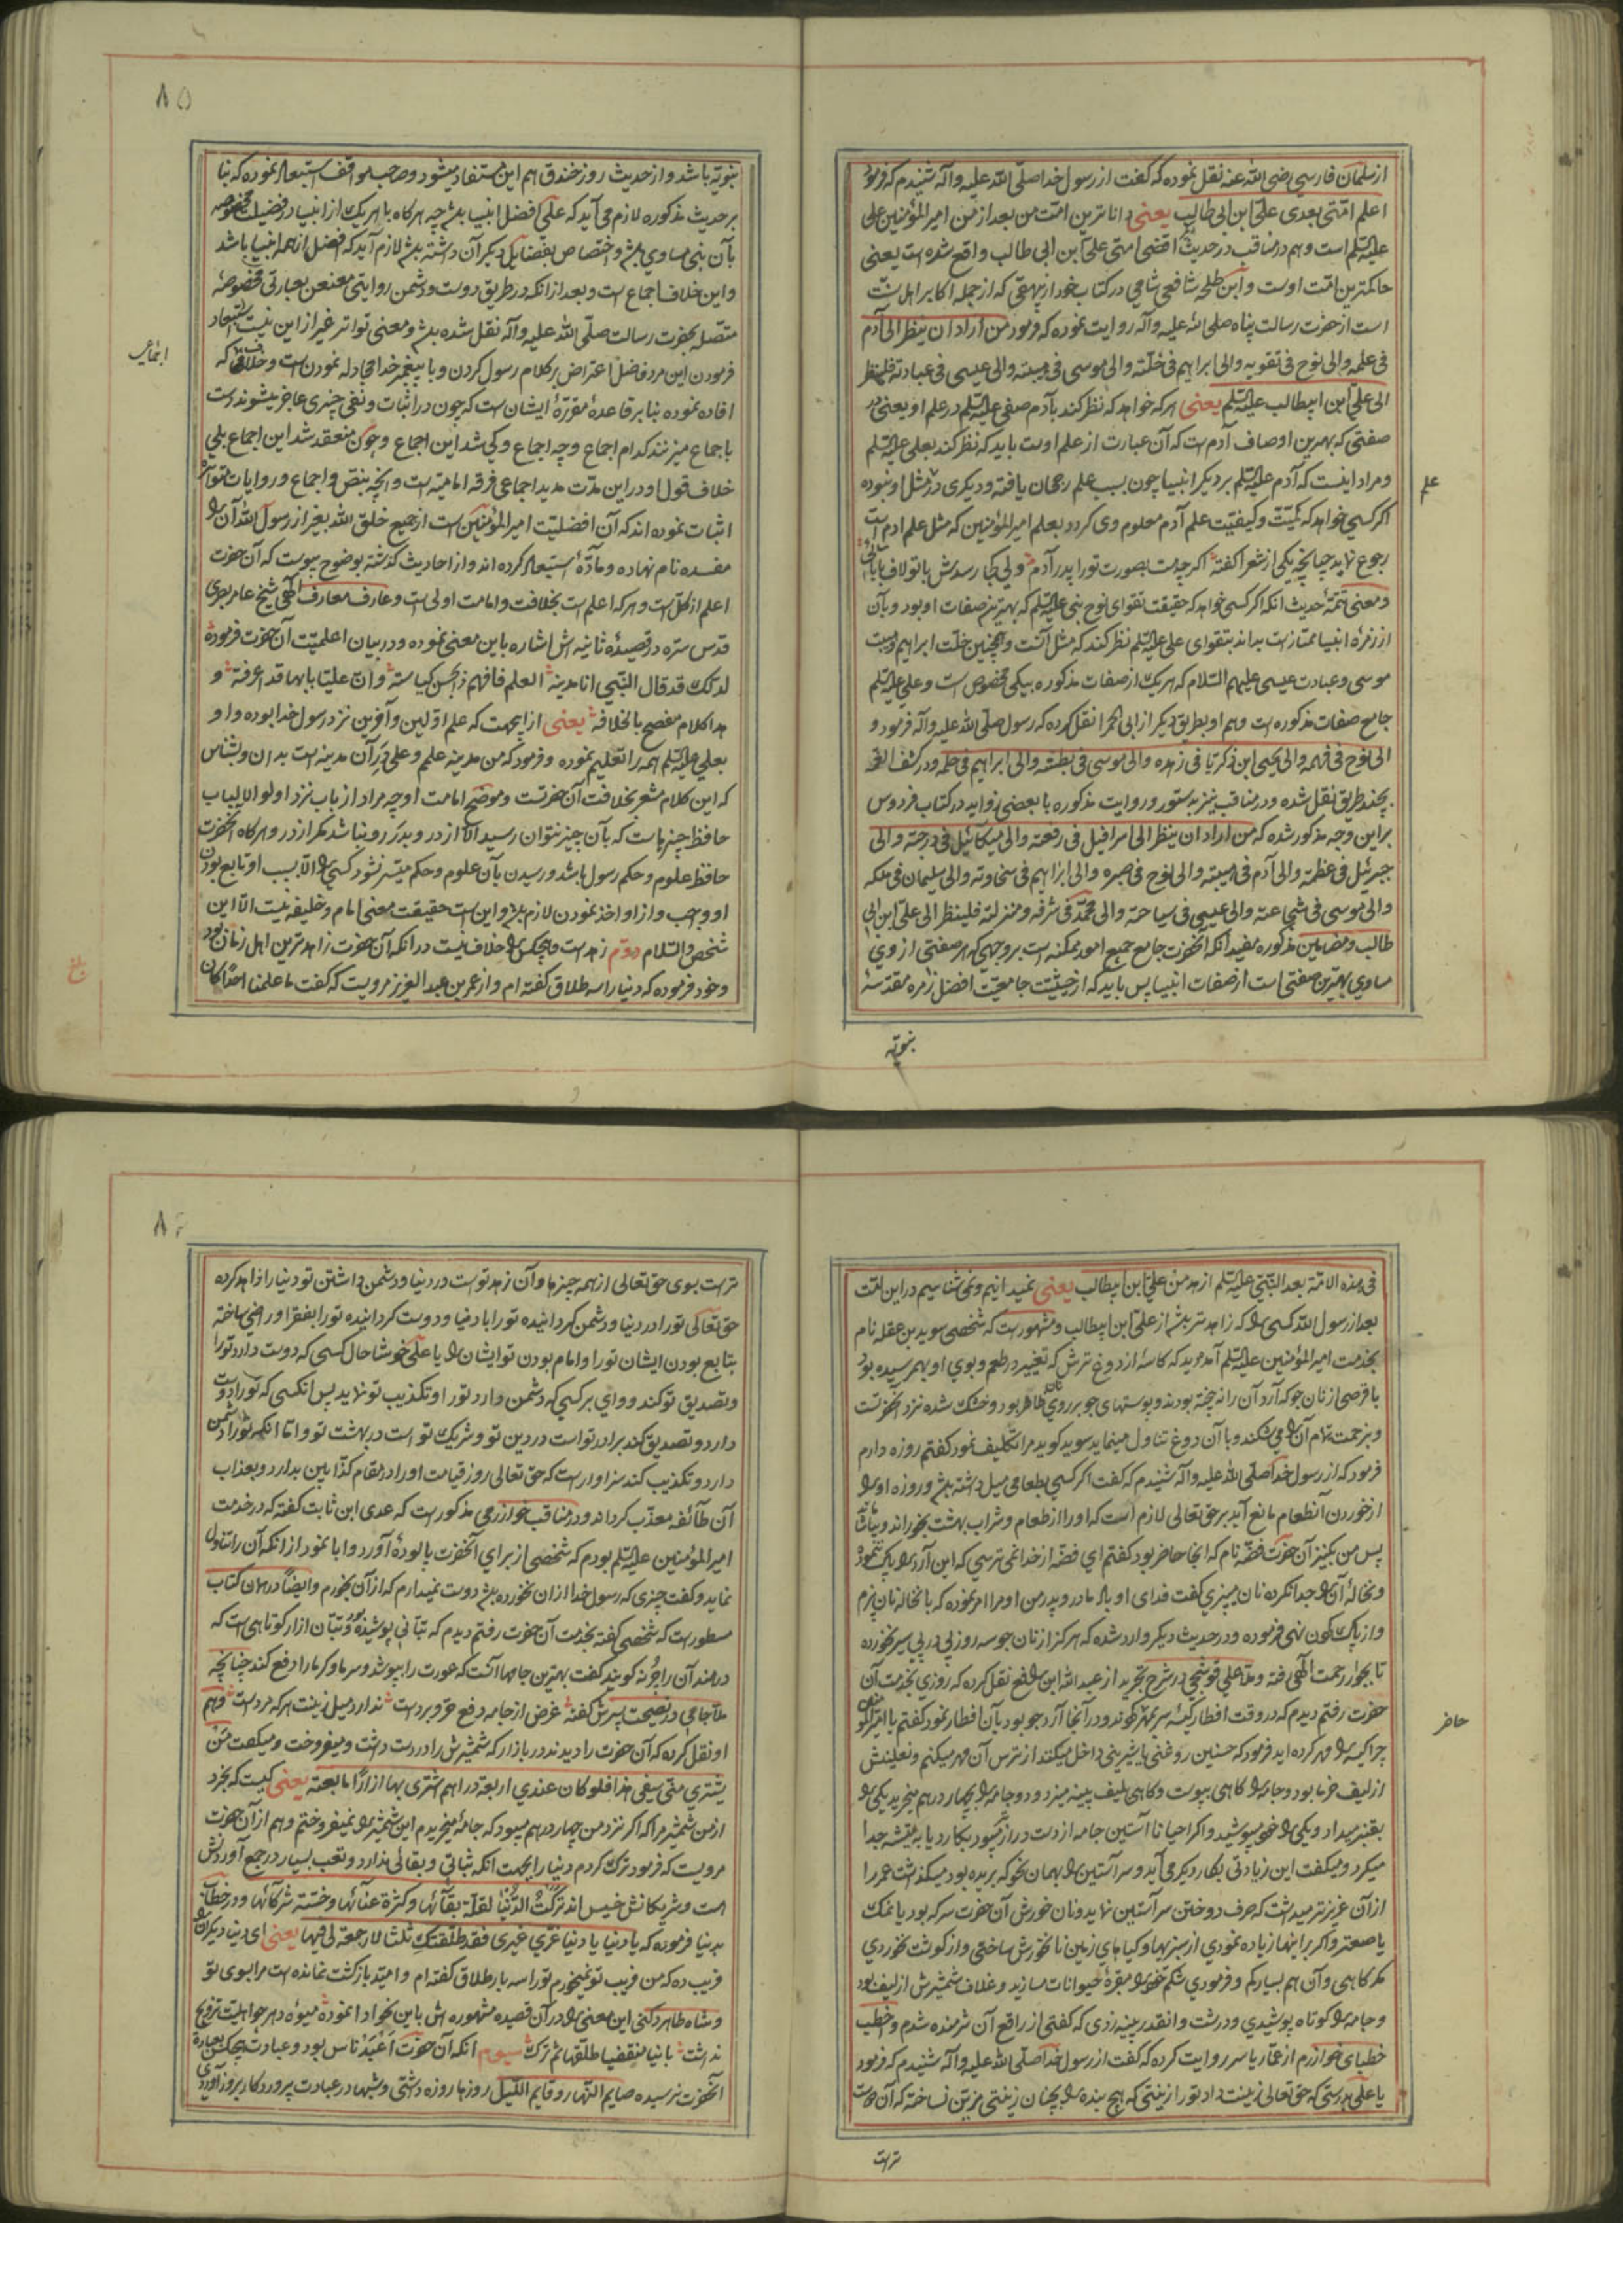 از سلمان فارسی رضی الله عنه نقل نموده که گفت از رسول خدا صلّی الله علیه وآله شنیدم که فرمود
اعلم امّتی بعدی علیّ ابن ابی طالب یعنی داناترین امّت من بعد از من امیر المؤمنین علی
علیه السّلم است و هم در مناقب در حدیث اقضی امتی علیّ ابن ابی طالب واقع شده است یعنی
حاکمترین امّت اوست و ابن طلحه شافعی شامی در کتاب خود از بیهقی که از جمله اکابر اهل سنّت
است از حضرت رسالت پناه صلی الله علیه وآله روایت نموده که فرمود من اراد ان ینظر الی آدم
فی علمه والی نوح فی تقویه والی ابراهیم فی خلّته والی موسی فی هیبته والی عیسی فی عبادته فلینظر
الی علیّ ابن ابیطالب علیه السّلم یعنی هر که خواهد که نظر کند بآدم صفی علیه السّلم در علم او یعنی در
صفتی که بهترین اوصاف آدم است که آن عبارت از علم اوست باید که نظر کند بعلی علیه السّلم
و مراد اینست که آدم علیه السّلم بر دیگر انبیا چون بسبب علم رجحان یافته و دیگری در مثل او نبوده
علم
اگر کسی خواهد که کمیّت و کیفیّت علم آدم معلوم وی گردد بعلم امیر المؤمنین که مثل علم ادم است
رجوع نماید چنانچه یکی از شعرا گفته اگر چه هست بصورت تو را پدر آدم ولی کجا رسدش با تو لاف
و معنی تتمّهٔ حدیث انکه اگر کسی خواهد که حقیقت تقوای نوح نبی علیه السّلم که بهترین صفات او بود و بآن
از زمرهٔ انبیا ممتاز است بداند بتقوای علی علیه السّلم نظر کند که مثل آنست و همچنین خلّت ابراهیم و هیبت
موسی و عبادت عیسی علیهم السّلام که هر یک از صفات مذکوره بیکی مخصوص است و علی علیه السّلم
جامع صفات مذکوره است و هم او بطریق دیگر از ابی الحمرا نقل کرده که رسول صلّی الله علیه وآله فرمود و
الی نوح فی فهمه والی یحیی ابن ذکریّا فی زهده والی موسی فی بطشه والی ابراهیم فی حلمه و در کشف الغمّه
بچند طریق نقل شده و در مناقب نیز بدستور و روایت مذکوره با بعضی زواید در کتاب فردوس
براین وجه مذکور شده که من اراد ان ینظر الی اسرافیل فی رفعته والی میکائیل فی درجته والی
جبرئیل فی عظمته والی آدم فی هیبته والی نوح فی صبره والی ابراهیم فی سخاوته والی سلیمان فی ملکه
والی موسی فی شجاعته والی عیسی فی سیاحته والی محمّد فی شرفه و منزلته فلینظر الی علیّ ابن ابی
طالب و مضامین مذکوره مفید آنکه آنحضرت جامع جمیع امور ممکنه است بر وجهی که هر صفتی از وی
مساوی بهترین صفتی است از صفات انبیا پس باید که از حیثیّت جامعیّت افضل زمره مقدّسهٔ
نبوّیه
۸۵
نبوّیه باشد و از حدیث روز خندق هم این مستفاد میشود و صاحب مواقف استبعاد نموده که بنا
بر حدیث مذکوره لازم می آید که علی افضل انبیا باشد چه هرگاه با هر یک از انبیا در فضیلت مخصوصه
بآن نبی مساوی باشد و اختصاص بفضایل دیگر آن داشته باشد لازم آید که افضل از همه انبیا باشد
و این خلاف اجماع است و بعد از انکه در طریق دوست و دشمن روایتی معنعن بعبارتی مخصوصهٔ
متّصله بحضرت رسالت صلّی الله علیه وآله نقل شده باشد و معنی تواتر غیر از این نیست استبعاد
فرمودن این مرد فاضل اعتراض بر کلام رسول کردن و با پیغمبر خدا مجادله نمودن است و خلافی که
اجماعی
افاده نموده بنا بر قاعدهٔ مقرّرهٔ ایشان است که چون در اثبات و نفی چیزی عاجز میشوند دست
باجماع میزنند کدام اجماع و چه اجماع و کی شد این اجماع و چون منعقد شد این اجماع بلی
خلاف قول او در این مدّت مدید اجماعی فرقه امامیّه است و انچه بنصّ و اجماع و روایات متواتره
اثبات نموده اند که آن افضلیّت امیر المؤمنین است از جمیع خلق الله بغیر از رسول الله آن را
مفسده نام نهاده و مادّهٔ استبعاد کرده اند و از احادیث گذشته بوضوح پیوست که آن حضرت
اعلم از کل است و هر که اعلم است بخلافت و امامت اولی است و عارف معارف الهی شیخ عامر بصری
قدّس سرّه در قصیدهٔ تائیه اش اشاره باین معنی نموده و در بیان اعلمیّت آن حضرت فرموده
لذلک قد قال النّبی انا مدینة العلم فافهم ذلک بحسن کیاسته وانّ علیّا بابها قد اعرفته و
هذا کلام مفصح بالخلافه یعنی از اینجهت که علم اوّلین و آخرین نزد رسول خدا بوده و او
بعلی علیه السّلم همه را تعلیم نموده و فرمود که من مدینه علم و علی درِ آن مدینه است بدان و بشناس
که این کلام مشعر بخلافت آن حضرتست و موضح امامت او چه مراد از باب نزد اولو الالباب
حافظ چیزیست که بآن چیز نتوان رسید الّا از در و بدر رو نباشد مگر از در و هرگاه آنحضرت
حافظ علوم و حکم رسول باشد و رسیدن بآن علوم و حکم میسّر نشود کسی را الّا بسبب او تابع بودن
او واجب و از او اخذ نمودن لازم باشد و این است حقیقت معنی امام و خلیفه نیست الّا این
شخص والسّلام دوّم زهد است و هیچکس را خلاف نیست در انکه آن حضرت زاهدترین اهل زمان بود
و خود فرموده که دنیا را سه طلاق گفته ام و از عمر بن عبد العزیز مرویست که گفت ما علمنا احدًا کان
فی هذه الامّة بعد النّبی علیه السّلم ازهد من علیّ ابن ابیطالب یعنی نمیدانیم و نمی شناسیم در این امّت
بعد از رسول الله کسی را که زاهدتر باشد از علیّ ابن ابیطالب و مشهور است که شخصی سوید بن عقله نام
بخدمت امیر المؤمنین علیه السّلم آمد دید که کاسه از دوغ ترش که تغییر در طعم و بوی او بهم رسیده بود
با قرصی از نان جو که آرد آن را نه پخته بودند و پوستهای جو بر روی نان ظاهر بود و خشک شده نزد آنحضرتست
و بزحمت تمام آن را می شکند و با آن دوغ تناول مینماید سوید گوید مرا تکلیف نمود گفتم روزه دارم
فرمود که از رسول خدا صلّی الله علیه وآله شنیدم که گفت اگر کسی بطعامی میل داشته باشد و روزه او را
از خوردن آنطعام مانع آید بر حق تعالی لازم است که او را از طعام و شراب بهشت بخوراند و بیاشاماند
پس من بکنیز آن حضرت فضّه نام که انجا حاضر بود گفتم ای فضّه از خدا نمی ترسی که این آرد را پاک ننموده
و نخالهٔ آن را جدا نکرده نان میپزی گفت فدای او باد مادر و پدر من او مرا امر نموده که با نخاله نان پزم
و از پاک کردن نهی فرموده و در حدیث دیگر وارد شده که هرگز از نان جو سه روز پی در پی سیر نخورده
تا بجوار رحمت الهی رفته و ملّا علی قوشچی در شرح تجرید از عبد الله ابن رافع نقل کرده که روزی بخدمت آن
حضرت رفتم دیدم که در وقت افطار کیسه سر بمهر گشودند و در آنجا آرد جو بود بآن افطار نمود گفتم یا امیر المؤمنین
حاضر
چرا کیسه را مهر کرده اید فرمود که حسنین روغنی یا شیرینی داخل میکنند از ترس آن مهر میکنم و نعلینش
از لیف خرما بود و جامه را گاهی بپوست و گاهی بلیف پینه میزد و دو جامه را بچهار درهم میخرید یکی را
بقنبر میداد و یکی را خود میپوشید و اگر احیانا آستین جامه از دست دراز میبود بکارد یا بتیشه جدا
میکرد و میگفت این زیادتی بکار دیگر می آید و سر آستین را بهمان نحو که بریده بود میگذاشت عمر را
از آن عزیزتر میداشت که صرف دوختن سر آستین نماید و نان خورش آن حضرت سرکه بود یا نمک
یا صعتر و اگر بر اینها زیاده نمودی از سبزیها و گیاهای زمین نانخورش ساختی و از گوشت نخوردی
مگر گاهی و آن هم بسیار کم و فرمودی شکم خود را مقبرهٔ حیوانات مسازید و غلاف شمشیرش از لیف بود
و جامه را کوتاه پوشیدی و درشت و انقدر پینه زدی که گفتی از راقع آن شرمنده شدم و اخطب
خطبای خوارزم از عمّار یاسر روایت کرده که گفت از رسول خدا صلّی الله علیه وآله شنیدم که فرمود
یا علی بدرستی که حق تعالی زینت داد تو را زینتی که هیچ بنده را بچنان زینتی مزیّن نساخته که آن دوست
تر است
۸۶
تر است بسوی حق تعالی از همه چیزها و آن زهد تو است در دنیا و دشمن داشتن تو دنیا را زاهد کرده
حق تعالی تو را در دنیا و دشمن گردانیده تو را با دنیا و دوست گردانیده تو را بفقرا و راضی ساخته
بتابع بودن ایشان تو را و امام بودن تو ایشان را یا علی خوشا حال کسی که دوست دارد تو را
و تصدیق تو کند و وای بر کسی که دشمن دارد تو را و تکذیب تو نماید پس انکسی که تو را دوست
دارد و تصدیق کند برادر تو است در دین تو و شریک تو است در بهشت تو و امّا انکه تو را دشمن
دارد و تکذیب کند سزاوار است که حق تعالی روز قیامت او را در مقام کذّابین بدارد و بعذاب
آن طائفه معذّب گرداند و در مناقب خوارزمی مذکور است که عدی ابن ثابت گفته که در خدمت
امیر المؤمنین علیه السّلم بودم که شخصی از برای آنحضرت پالودهٔ آورد و ابا نمود از انکه آن را تناول
نماید و گفت چیزی که رسول خدا از ان نخورده باشد دوست نمیدارم که از آن بخورم و ایضًا در همان کتاب
مسطور است که شخصی گفته بخدمت آن حضرت رفتم دیدم که تبّانی پوشیده بود و تبّان ازار کوتاهی است که
در هند آن را جُرنه گویند گفت بهترین جامها آنست که عورت را بپوشد و سرما و گرما را دفع کند چنانچه
ملّا جامی در نصیحت پسرش گفته غرض از جامه دفع حرّ و برد است ندارد میل زینت هر که مرد است و هم
او نقل کرده که آن حضرت را دیدند در بازار که شمشیرش را در دست داشت و میفروخت و میگفت مَن
یشتری منّی سیفی هذا فلو کان عندی اربعة دراهم اشتری بها ازارًا ما بعته یعنی کیست که بخرد
از من شمشیر مرا که اگر نزد من چهار درهم میبود که جامه میخریدم این شمشیر را نمیفروختم و هم از آن حضرت
مرویست که فرمود ترک کردم دنیا را بجهت انکه ثباتی و بقائی ندارد و تعب بسیار در جمع آوردنش
است و شریکانش خسیس اند ترکتُ الدّنیا لقلّة بقائها و کثرة عنائها و خسّة شرکائها و در خطاب
بدنیا فرموده که یا دنیا یا دنیا غرّی غیری فقد طلّقتکِ ثلثا لا رجعة لی فیها یعنی ای دنیا دیگران را
فریب ده که من فریب تو نمیخورم تو را سه بار طلاق گفته ام و امید بازگشت نمانده است مرا بسوی تو
و شاه طاهر دکنی این معنی را در آن قصیده مشهوره اش باین نحو ادا نموده میوهٔ دهر چو اهلیّت تزویج
نداشت بانیا منقضیا طلّقها ثم ترک سیوم انکه آن حضرت اَعبَد ناس بود و عبادت هیچکس بعبادة
آنحضرت نرسیده صایم النّهار و قایم اللّیل روزها روزه داشتی و شبها در عبادت پروردگار بروز آوردی